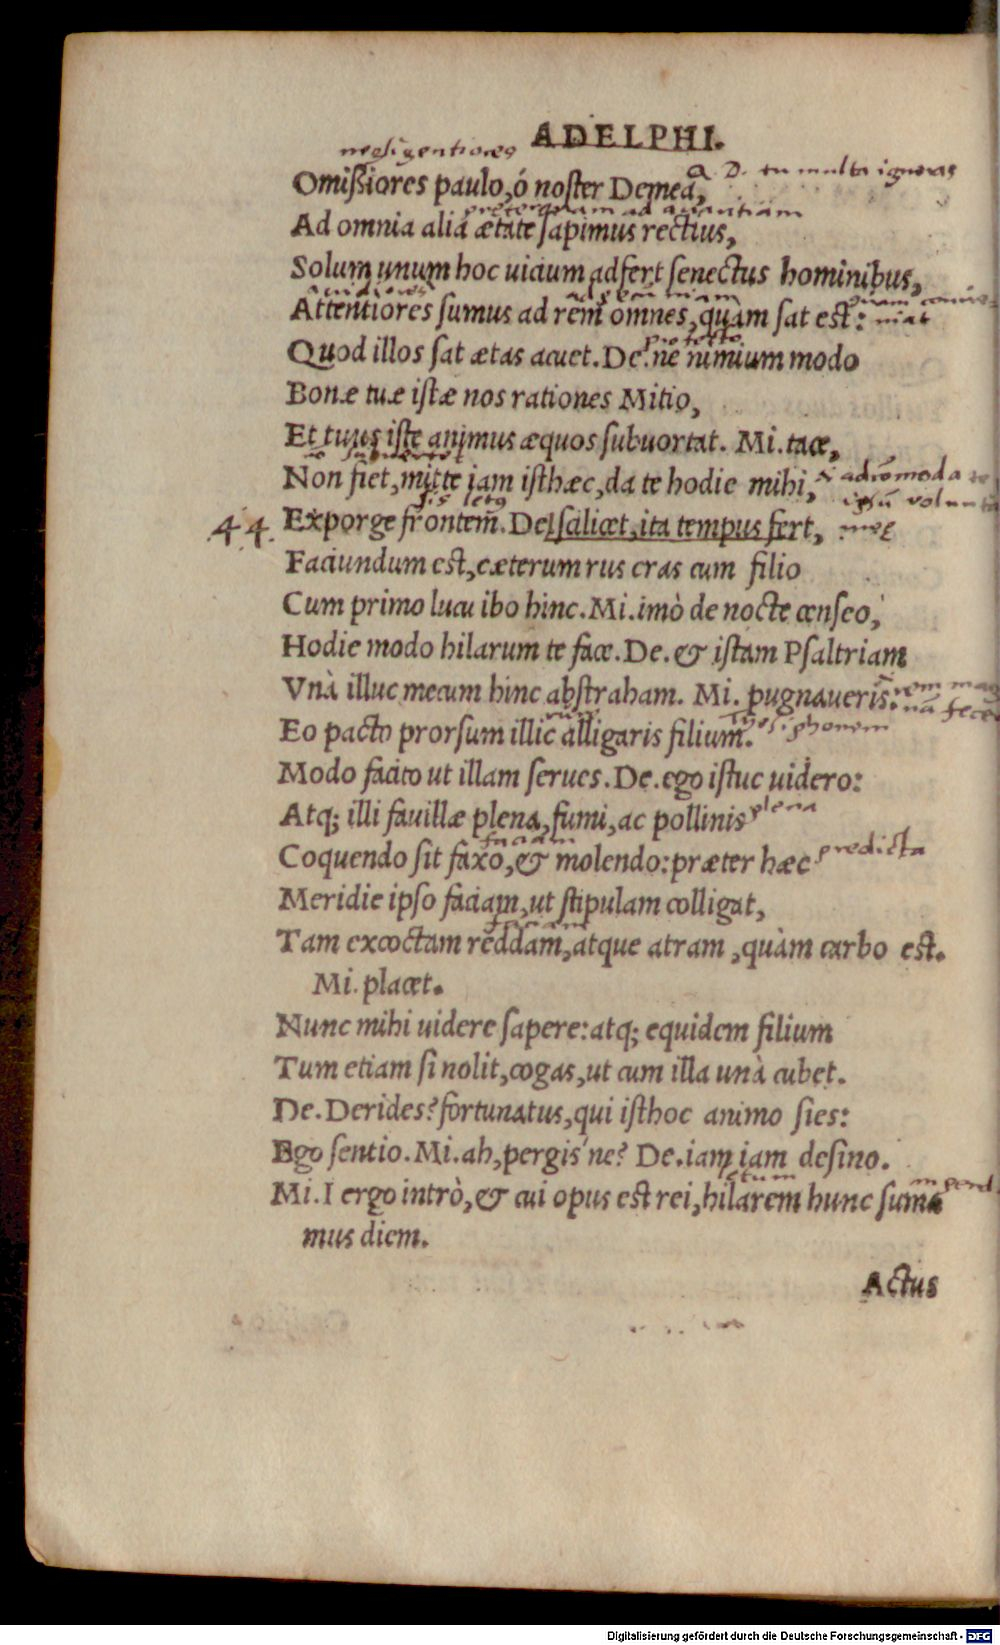 ADELPHI.
negligentiores
a. D. tu multa ignoras
Omißiores paulo, ó noster Demea,
preterquam ad avantiam
Ad omnia alia ætate sapimus rectius,
Solum unum hoc uicium adfert senectus hominibus,
avidiores
quam
Attentiores sumus ad rem omnes, quam sat est:
niat
Quod illos sat ætas acuet. De. ne nimium modo
Bonæ tuæ istæ nos rationes Mitio,
Et tuus iste animus æquos subuortat. Mi. tace,
Non fiet, mitte iam isthæc, da te hodie mihi,
sis letus
44.
Exporge frontem. De. scilicet, ita tempus fert,
Faciundum est, cæterum rus cras cum filio
Cum primo lucu ibo hinc. Mi. imò de nocte censeo,
Hodie modo hilarum te face. De. & istam Psaltriam
Vnà illuc mecum hinc abstraham. Mi. pugnaueris.
rem mag
nã fece
Eo pacto prorsum illic alligaris filium.
Modo facito ut illam serues. De. ego istuc uidero:
Atq; illi fauillæ plena, fumi, ac pollinis
plena
faciam
Coquendo sit faxo, & molendo: præter hæc
predicta
Meridie ipso faciam, ut stipulam colligat,
faciam
Tam excoctam reddam, atque atram, quàm carbo est.
Mi. placet.
Nunc mihi uidere sapere: atq; equidem filium
Tum etiam si nolit, cogas, ut cum illa unà cubet.
De. Derides? fortunatus, qui isthoc animo sies:
Ego sentio. Mi. ah, pergis'ne? De. iam iam desino.
Mi. I ergo intrò, & cui opus est rei, hilarem hunc suma
mus diem.
Actus
Digitalisierung gefördert durch die Deutsche Forschungsgemeinschaft - DFG